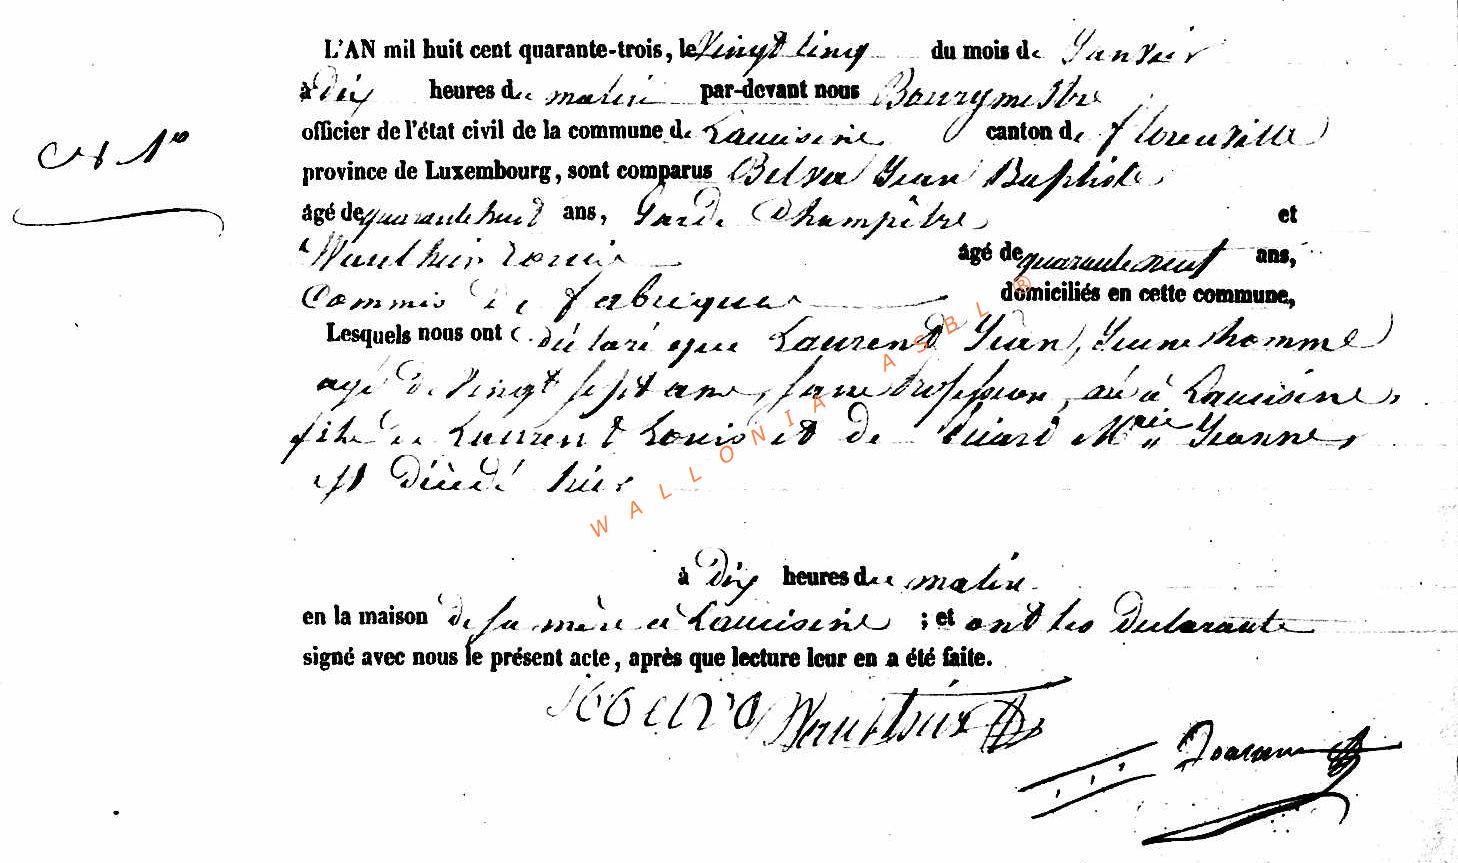 L'AN mil huit cent quarante-trois, le Vingt cinq du mois de Janvier
à dix heures du matin par-devant nous Bourgmestre
N 1er
officier de l'état civil de la commune de Lacuisine canton de florenville
province de Luxembourg, sont comparus Belva Jean Baptiste,
âgé de quarante huit ans, Garde Champêtre et
Wauthier Louis âgé de quarante neuf ans,
Commis de fabrique domiciliés en cette commune,
Lesquels nous ont déclaré que Laurent Jean, Jeune homme
agé de Vingt sept ans, sans profession, né à Lacuisine,
fils de Laurent Louis et de Mie Jeanne,
est décédé hier
à dix heures du matin
en la maison de sa mère à Lacuisine ; et ont les Déclarants
signé avec nous le présent acte, après que lecture leur en a été faite.
Wauthier
WALLONIA ASBL ®